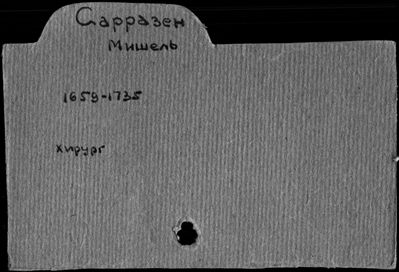 Сарразен
Мишель
1659-1735
хирург